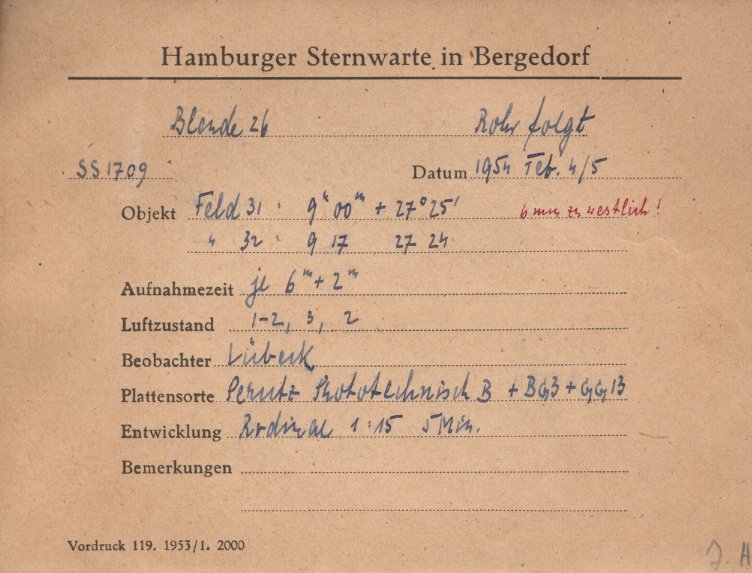 Hamburger Sternwarte in Bergedorf
Blende 26 Rohr folgt
SS 1709 Datum 1954 Feb. 4/5
Objekt Feld 31 : 9ʰ 00ᵐ + 27° 25' 6 mm zu westlich!
" 32 : 9 17 27 24
Aufnahmezeit je 6ᵐ + 2ᵐ
Luftzustand 1-2, 3, 2
Beobachter Lübeck
Plattensorte Perutz Phototechnisch B + BG3 + GG13
Entwicklung Rodinal 1:15 5 Min.
Bemerkungen
Vordruck 119. 1953/1. 2000
J. H